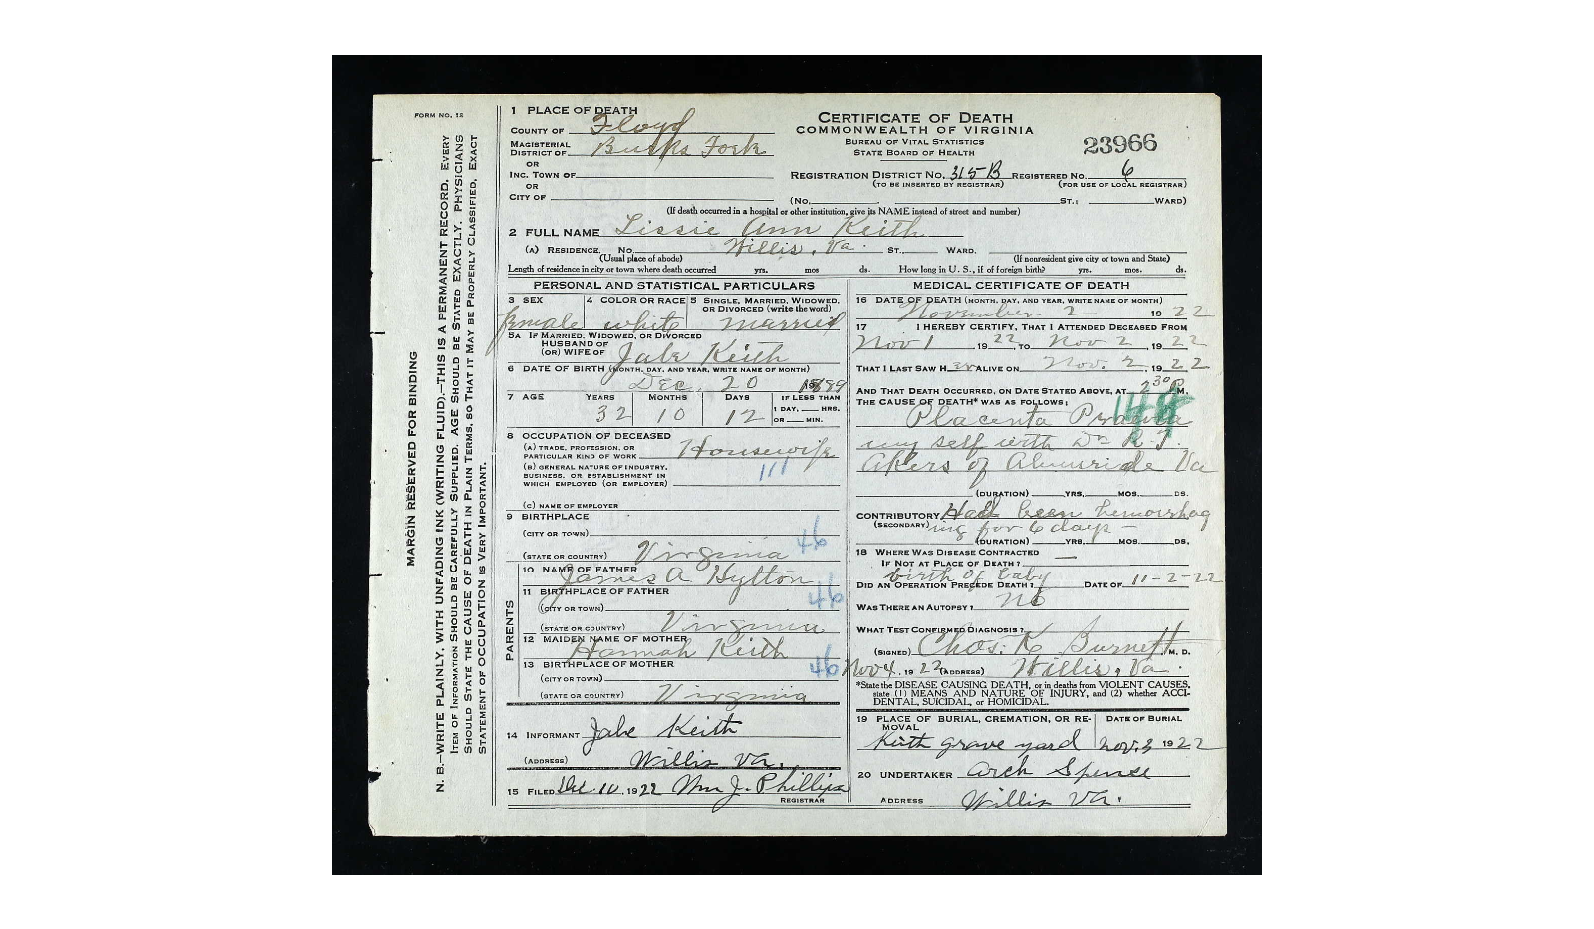 FORM NO. 12
MARGIN RESERVED FOR BINDING
N. B.—WRITE PLAINLY, WITH UNFADING INK (WRITING FLUID).—THIS IS A PERMANENT RECORD. EVERY
ITEM OF INFORMATION SHOULD BE CAREFULLY SUPPLIED. AGE SHOULD BE STATED EXACTLY. PHYSICIANS
SHOULD STATE THE CAUSE OF DEATH IN PLAIN TERMS, SO THAT IT MAY BE PROPERLY CLASSIFIED. EXACT
STATEMENT OF OCCUPATION IS VERY IMPORTANT.
1 PLACE OF DEATH
COUNTY OF Floyd
MAGISTERIAL DISTRICT OF Burks Fork
OR
INC. TOWN OF
OR
CITY OF
CERTIFICATE OF DEATH
COMMONWEALTH OF VIRGINIA
BUREAU OF VITAL STATISTICS
STATE BOARD OF HEALTH
23966
REGISTRATION DISTRICT NO. 315-B REGISTERED NO. 6
(TO BE INSERTED BY REGISTRAR) (FOR USE OF LOCAL REGISTRAR)
(No. ST.; WARD)
(If death occurred in a hospital or other institution, give its NAME instead of street and number)
2 FULL NAME Lissie Ann Keith
(A) RESIDENCE. No. Willis, Va. ST. WARD.
(Usual place of abode) (If nonresident give city or town and State)
Length of residence in city or town where death occurred yrs. mos ds. How long in U. S., if of foreign birth? yrs. mos. ds.
PERSONAL AND STATISTICAL PARTICULARS
3 SEX 4 COLOR OR RACE 5 SINGLE, MARRIED, WIDOWED, OR DIVORCED (write the word)
female white married
5A IF MARRIED, WIDOWED, OR DIVORCED
HUSBAND OF
(OR) WIFE OF Jabe Keith
6 DATE OF BIRTH (MONTH, DAY, AND YEAR, WRITE NAME OF MONTH)
Dec. 20 1889
7 AGE YEARS MONTHS DAYS IF LESS THAN
1 DAY, HRS.
OR MIN.
32 10 12
8 OCCUPATION OF DECEASED
(A) TRADE, PROFESSION, OR
PARTICULAR KIND OF WORK Housewife
(B) GENERAL NATURE OF INDUSTRY,
BUSINESS, OR ESTABLISHMENT IN
WHICH EMPLOYED (OR EMPLOYER)
(C) NAME OF EMPLOYER
9 BIRTHPLACE
(CITY OR TOWN) 46
(STATE OR COUNTRY) Virginia
PARENTS
10 NAME OF FATHER James A Hylton
11 BIRTHPLACE OF FATHER
(CITY OR TOWN) 46
(STATE OR COUNTRY) Virginia
12 MAIDEN NAME OF MOTHER
Hannah Keith
13 BIRTHPLACE OF MOTHER
(CITY OR TOWN) 46
(STATE OR COUNTRY) Virginia
14 INFORMANT Jabe Keith
(ADDRESS) Willis Va.
15 FILED Dec. 10, 1922 Wm J. Phillips
REGISTRAR
MEDICAL CERTIFICATE OF DEATH
16 DATE OF DEATH (MONTH, DAY, AND YEAR, WRITE NAME OF MONTH)
November 2 1922
17 I HEREBY CERTIFY, THAT I ATTENDED DECEASED FROM
Nov 1, 1922, TO Nov 2, 1922
THAT I LAST SAW HER ALIVE ON Nov. 2, 1922
AND THAT DEATH OCCURRED, ON DATE STATED ABOVE, AT 2 30 P M.
THE CAUSE OF DEATH* WAS AS FOLLOWS:
Placenta Praevia
my self with Dr R. T.
Akers of Alumridge Va
(DURATION) YRS. MOS. DS.
CONTRIBUTORY Had been hemorrhag
(SECONDARY) ing for 6 days —
(DURATION) YRS. MOS. DS.
18 WHERE WAS DISEASE CONTRACTED
IF NOT AT PLACE OF DEATH? —
birth of baby
DID AN OPERATION PRECEDE DEATH? DATE OF 11-2-22
WAS THERE AN AUTOPSY? No
WHAT TEST CONFIRMED DIAGNOSIS?
(SIGNED) Chas. K. Burnett, M. D.
Nov 4, 1922 (ADDRESS) Willis, Va.
*State the DISEASE CAUSING DEATH, or in deaths from VIOLENT CAUSES,
state (1) MEANS AND NATURE OF INJURY, and (2) whether ACCI-
DENTAL, SUICIDAL, or HOMICIDAL.
19 PLACE OF BURIAL, CREMATION, OR RE-
MOVAL DATE OF BURIAL
Keith grave yard Nov. 3 1922
20 UNDERTAKER Arch Spence
ADDRESS Willis Va.